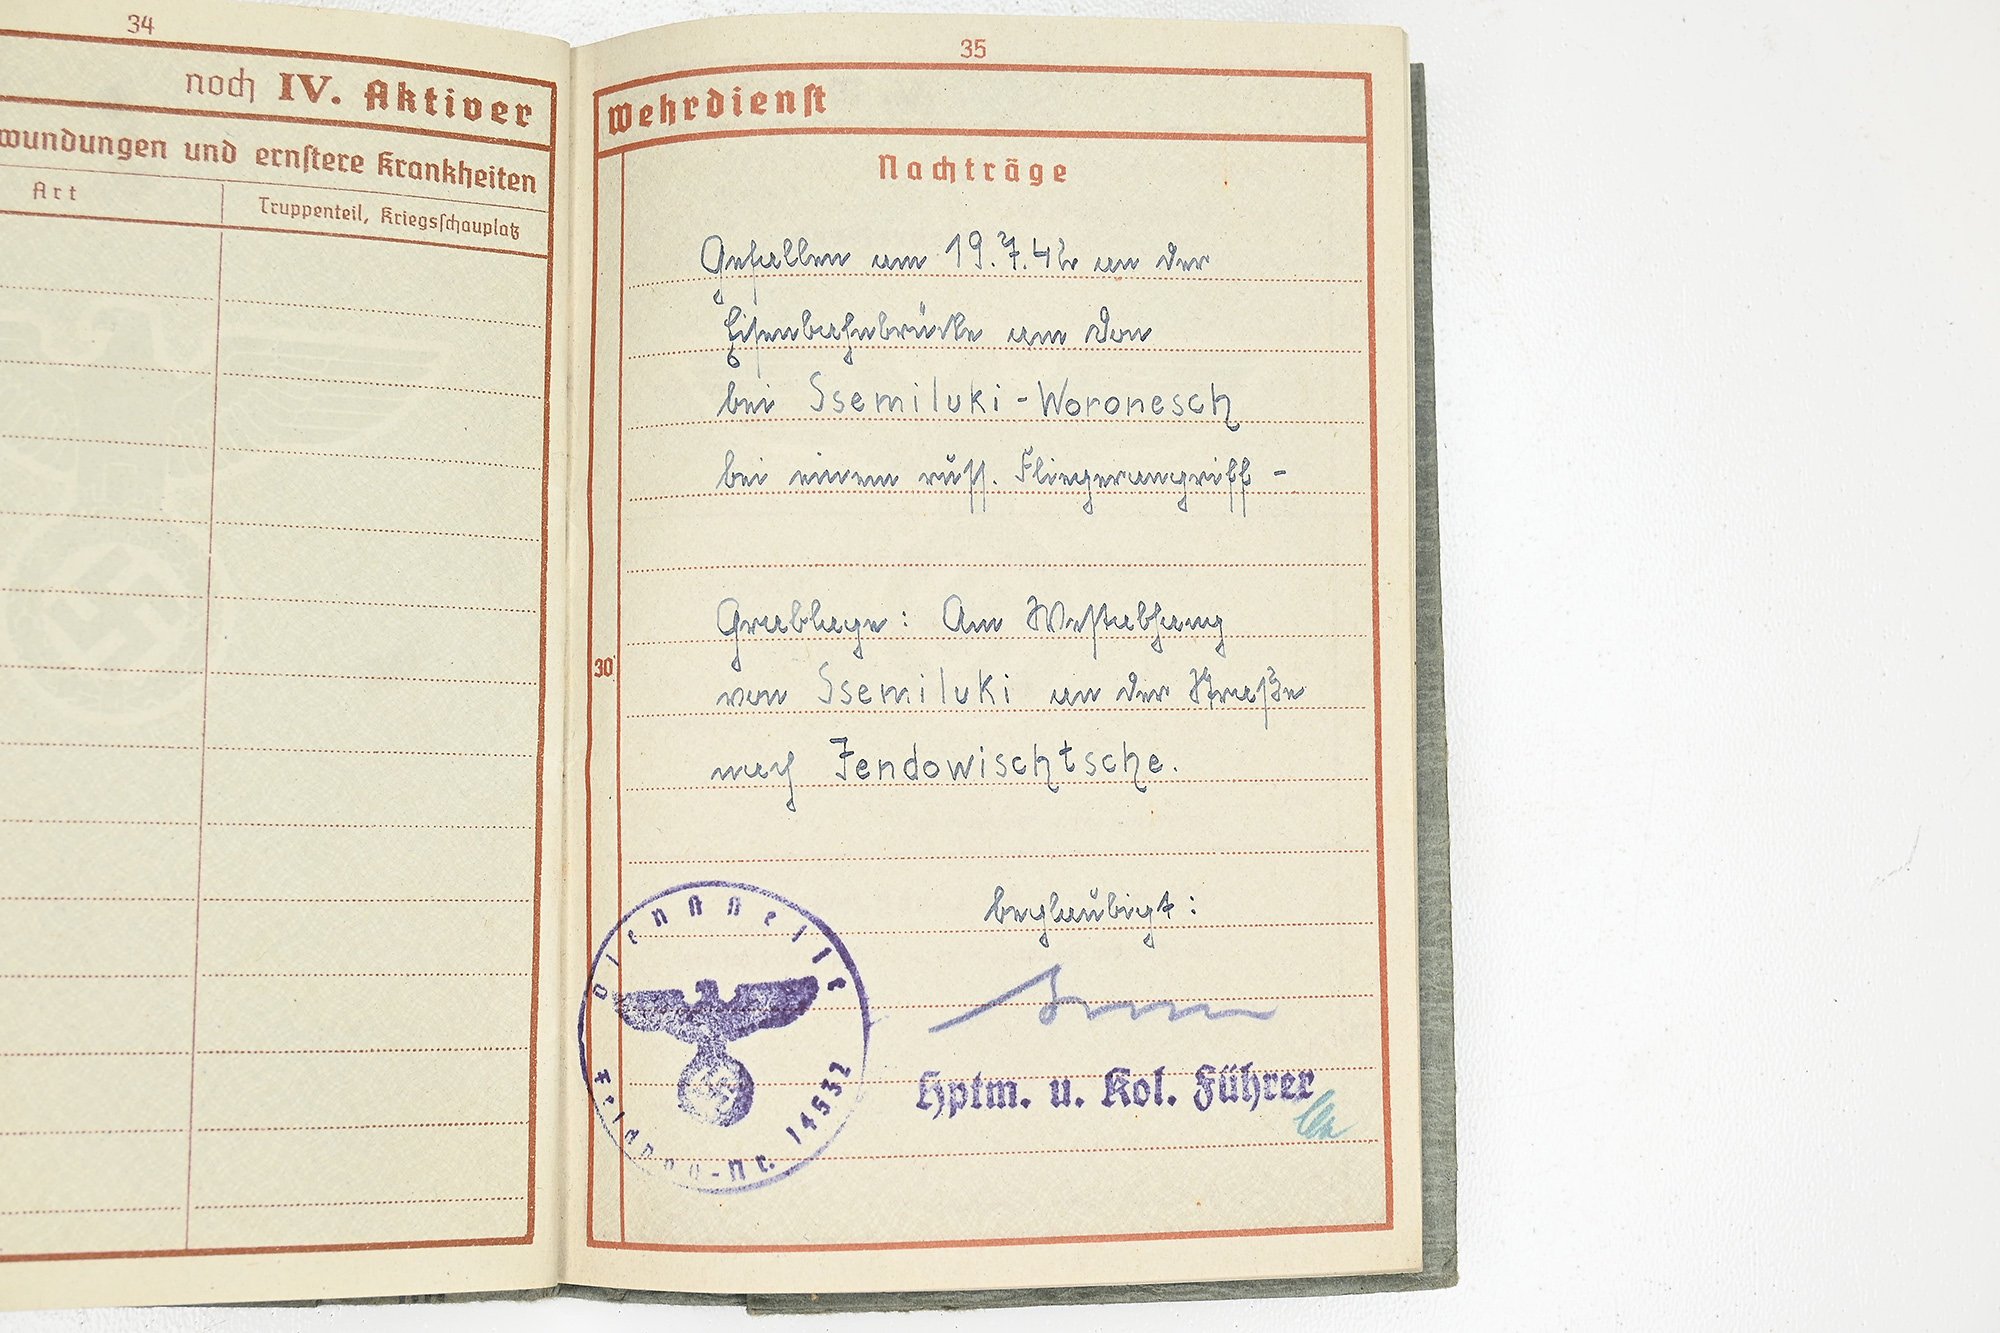 34
noch IV. Aktiver
wundungen und ernstere Krankheiten
Art
Truppenteil, Kriegsschauplatz
35
Wehrdienst
Nachträge
Gefallen am 19.7.42 an der
Eisenbahnbrücke am Don
bei Ssemiluki-Woronesch
bei einem russ. Fliegerangriff -
Grablage: Am Westabhang
von Ssemiluki an der Straße
nach Jendowischtsche.
30
beglaubigt:
Dienststelle
Feldpost-Nr. 14532
Hptm. u. Kol. Führer